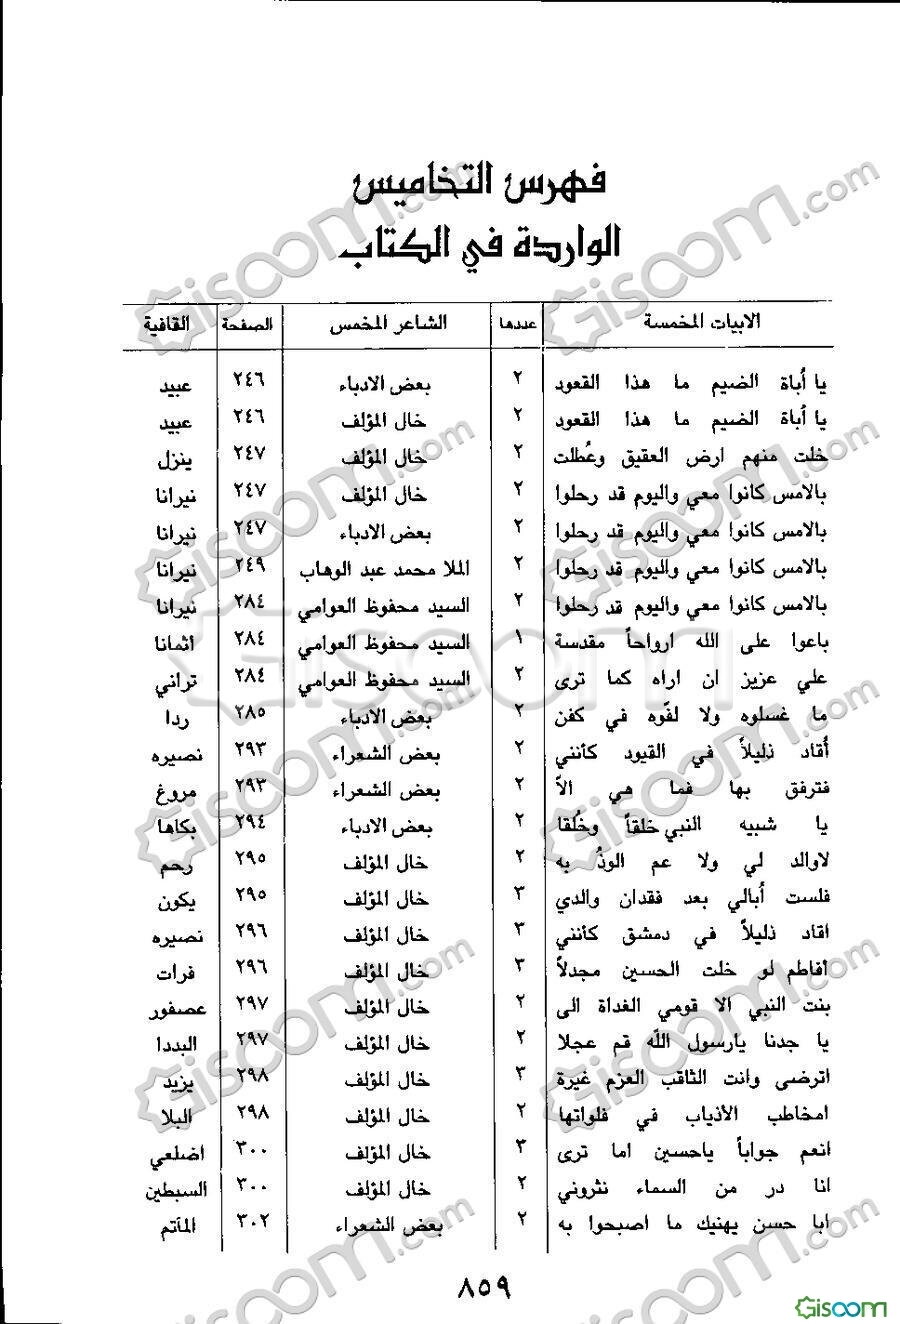 فهرس التخاميس
الواردة في الكتاب
الابيات المخمسة عددها الشاعر المخمس الصفحة القافية
يا أُباة الضيم ما هذا القعود ٢ بعض الادباء ٢٤٦ عبيد
يا أُباة الضيم ما هذا القعود ٢ خال المؤلف ٢٤٦ عبيد
خلت منهم ارض العقيق وعُطلت ٢ خال المؤلف ٢٤٧ ينزل
بالامس كانوا معي واليوم قد رحلوا ٢ خال المؤلف ٢٤٧ نيرانا
بالامس كانوا معي واليوم قد رحلوا ٢ بعض الادباء ٢٤٧ نيرانا
بالامس كانوا معي واليوم قد رحلوا ٢ الملا محمد عبد الوهاب ٢٤٩ نيرانا
بالامس كانوا معي واليوم قد رحلوا ٢ السيد محفوظ العوامي ٢٨٤ نيرانا
باعوا على الله ارواحاً مقدسة ١ السيد محفوظ العوامي ٢٨٤ اثمانا
علي عزيز ان اراه كما ترى ٢ السيد محفوظ العوامي ٢٨٤ تراني
ما غسلوه ولا لفّوه في كفن ٢ بعض الادباء ٢٨٥ ردا
أُقاد ذليلاً في القيود كأنني ٢ بعض الشعراء ٢٩٣ نصيره
فترفق بها فما هي الاّ ٢ بعض الشعراء ٢٩٣ مروغ
يا شبيه النبي خلقاً وخُلقا ٢ بعض الادباء ٢٩٤ بكاها
لاوالد لي ولا عم الوذُ به ٢ خال المؤلف ٢٩٥ رحم
فلست أُبالي بعد فقدان والدي ٣ خال المؤلف ٢٩٥ يكون
اقاد ذليلاً في دمشق كأنني ٣ خال المؤلف ٢٩٦ نصيره
أفاطم لو خلت الحسين مجدلاً ٣ خال المؤلف ٢٩٦ فرات
بنت النبي الا قومي الغداة الى ٢ خال المؤلف ٢٩٧ عصفور
يا جدنا يارسول اللّه قم عجلا ٢ خال المؤلف ٢٩٧ البددا
اترضى وانت الثاقب العزم غيرة ٣ خال المؤلف ٢٩٨ يزيد
امخاطب الأذياب في فلواتها ٢ خال المؤلف ٢٩٨ البلا
انعم جواباً ياحسين اما ترى ٣ خال المؤلف ٣٠٠ اضلعي
انا در من السماء نثروني ٢ خال المؤلف ٣٠٠ السبطين
ابا حسن يهنيك ما اصبحوا به ٢ بعض الشعراء ٣٠٢ المأتم
٨٥٩
Giscom